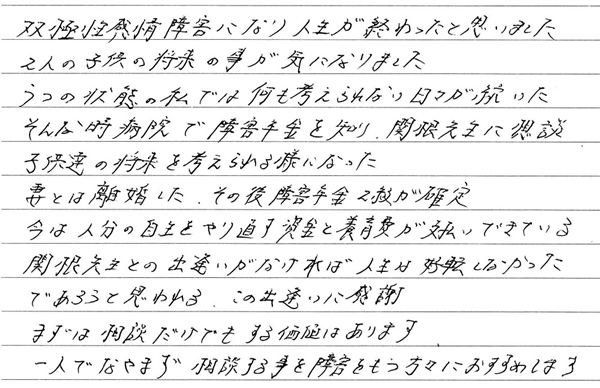 双極性感情障害になり人生が終わったと思いました
2人の子供の将来の事が気になりました
うつの状態の私では何も考えられない日々が続いた
そんな時病院で障害年金を知り、関根先生に相談
子供達の将来を考えられる様になった
妻とは離婚した、その後障害年金2級が確定
今は人分の自生をやり直す資金と養育費が支払いできている
関根先生との出逢いがなければ人生は好転しなかった
であろうと思われる、この出逢いに感謝
まずは相談だけでもする価値はあります
一人でなやまず相談する事を障害をもつ方々におすすめします